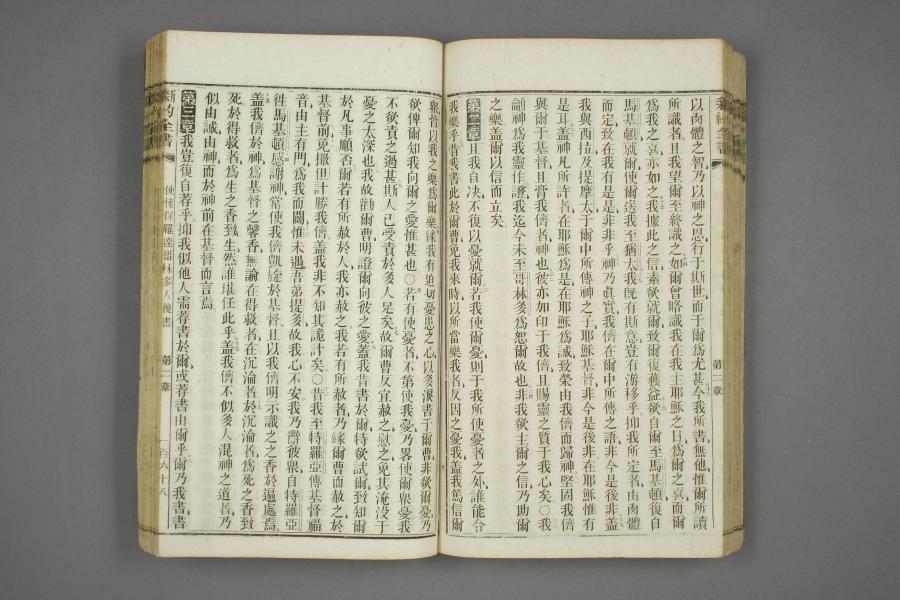 新約全書
第二章
以肉體之智乃以神之恩行于斯世而于爾爲尤甚今我所書無他惟爾所讀
所識者且我望爾至終識之如爾曾略識我在我主耶穌之日爲爾之喜而爾
爲我之喜亦如之我據此之信素欲就爾致爾復獲益欲自爾至馬基頓復自
馬基頓就爾使爾送我至猶太我旣有斯意豈有游移乎抑我所定者由肉體
而定致在我有是是非非乎神乃眞實我儕在爾中所傳之語非今是後非蓋
我與西拉及提摩太于爾中所傳神之子耶穌基督非今是後非在耶穌惟有
是耳蓋神凡所許者在耶穌爲是在耶穌爲誠致榮由我儕而歸神堅固我儕
與爾于基督且膏我儕者神也彼亦加印于我儕且賜靈之質于我心矣○我
籲神爲我靈作證我迄今未至哥林多爲恕爾故也非我欲主爾之信乃助爾
之樂蓋爾以信而立矣
第二章且我自决不復以憂就爾若我使爾憂則于我所使憂者之外誰能令
我樂乎昔我書此於爾曹免我來時以所當樂我者反因之憂我蓋我篤信爾
衆皆以我之樂爲爾樂緣我有迫切憂患之心以多淚書于爾曹非欲爾憂乃
欲俾爾知我向爾之愛惟甚也○若有使憂者不第使我憂乃畧使爾衆憂我
不欲責之過甚斯人已受責於多人足矣故爾曹反宜赦之慰之免其淹没于
憂之太深也我故勸爾曹明證爾向彼之愛蓋我昔書於爾特欲試爾致知爾
於凡事順否爾若有所赦於人我亦赦之我若有所赦者乃緣爾曹而赦之於
基督前免撒但計勝我儕蓋我非不知其詭計矣○昔我至特羅亞傳基督福
音由主有門爲我而闢惟未遇吾弟提多故我心不安我乃辭彼衆自特羅亞
徃馬基頓感謝神常使我儕凱旋於基督且以我儕明示識之之香於遍處焉
蓋我儕於神爲基督之馨香無論在得救者在沉淪者於沉淪者爲死之香致
死於得救者爲生之香致生然誰堪任此乎蓋我儕不似多人混神之道者乃
似由誠由神而於神前在基督而言焉
第三章我豈復自荐乎抑我似他人需荐書於爾或荐書由爾乎爾乃我書書
新約全書
使徒保羅達哥林多人後書
第二章
一百六十八